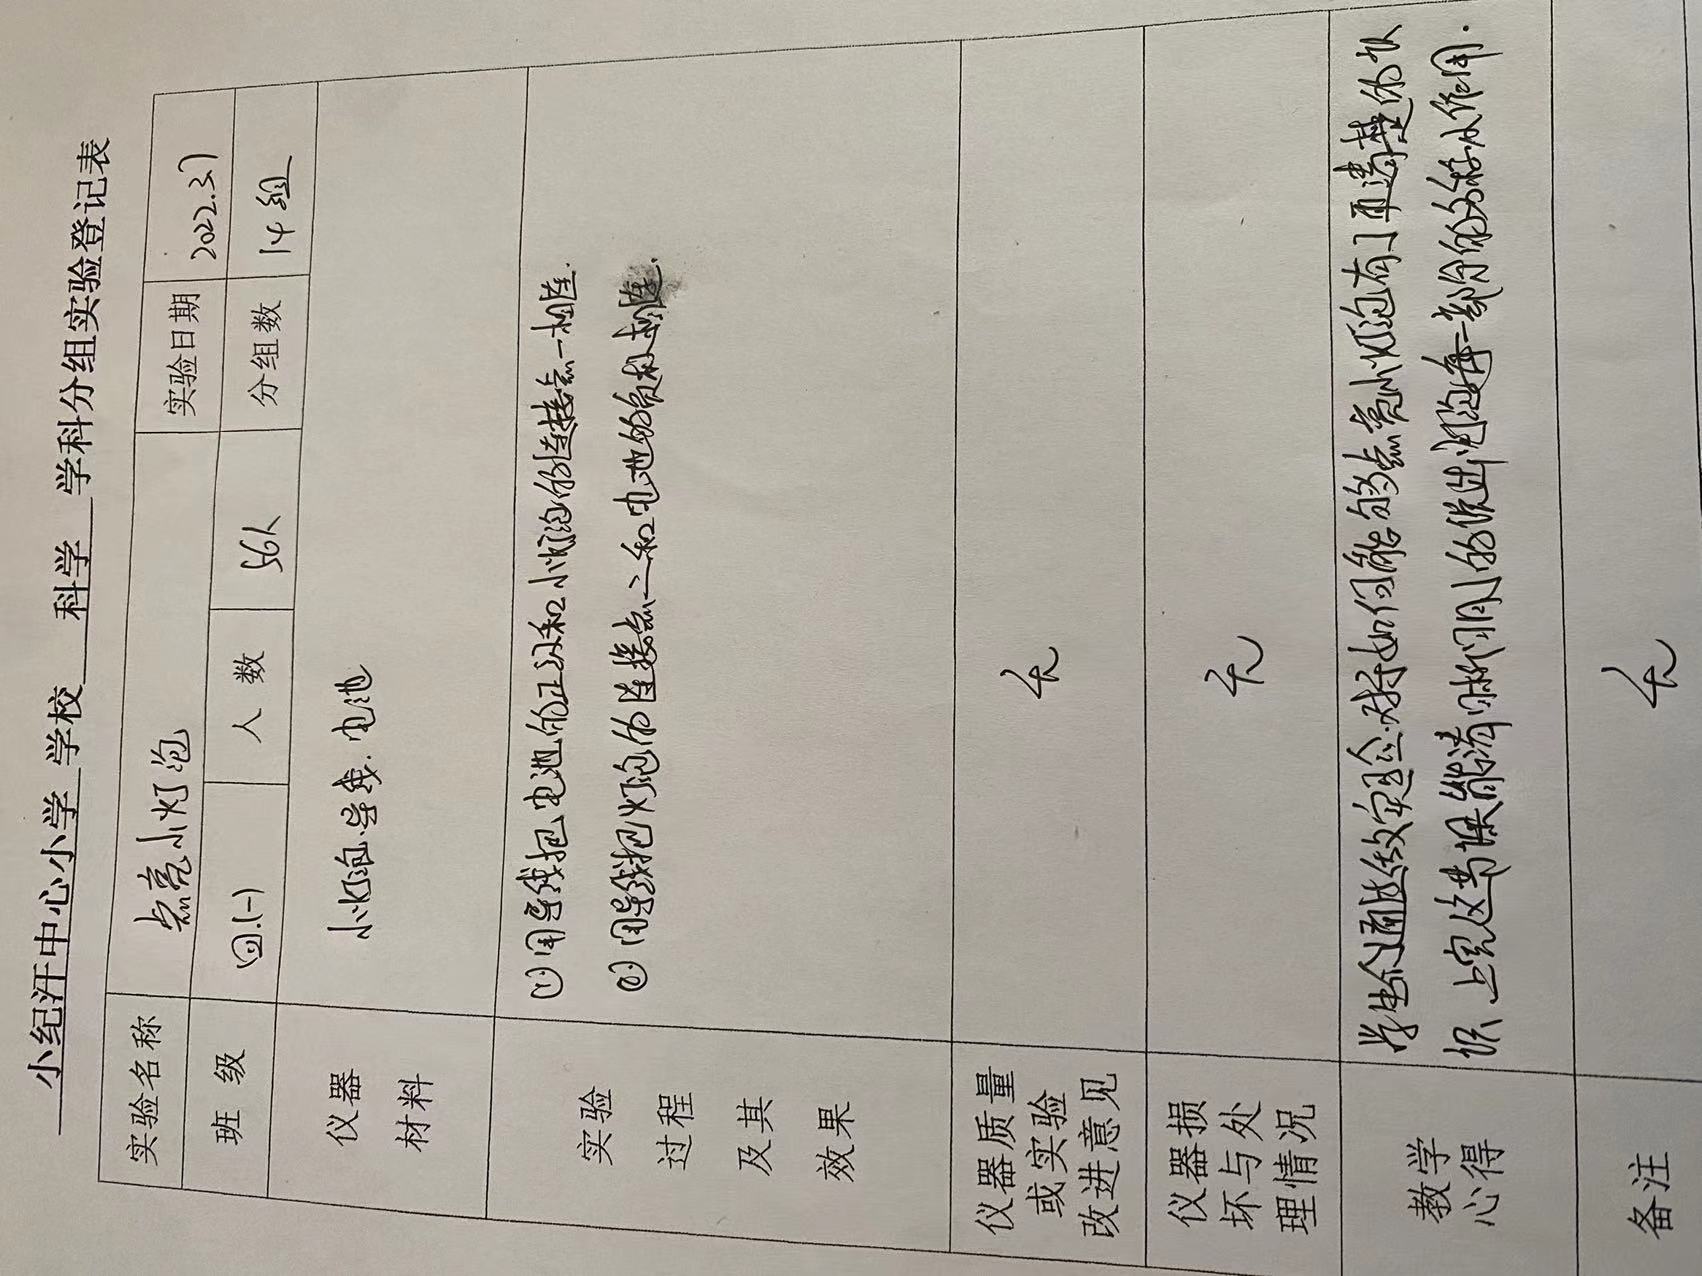 小纪汗中心小学 学校 科学 学科分组实验登记表
实验名称 点亮小灯泡 实验日期 2022.3.7
班 级 四.(一) 人 数 56人 分组数 14组
仪器
材料
小灯泡.导线.电池
实验
过程
及其
效果
①.用导线把电池的正极和小灯泡的连接点一相连.
②.用导线把灯泡的连接点二和电池的负极相连.
仪器质量
或实验
改进意见
无
仪器损
坏与处
理情况
无
教学
心得
学生们通过这次实验.对于如何能够点亮小灯泡有了更清楚的认
识.上完这节课能清晰明了的说出灯泡每一部分的名称及作用.
备注 无